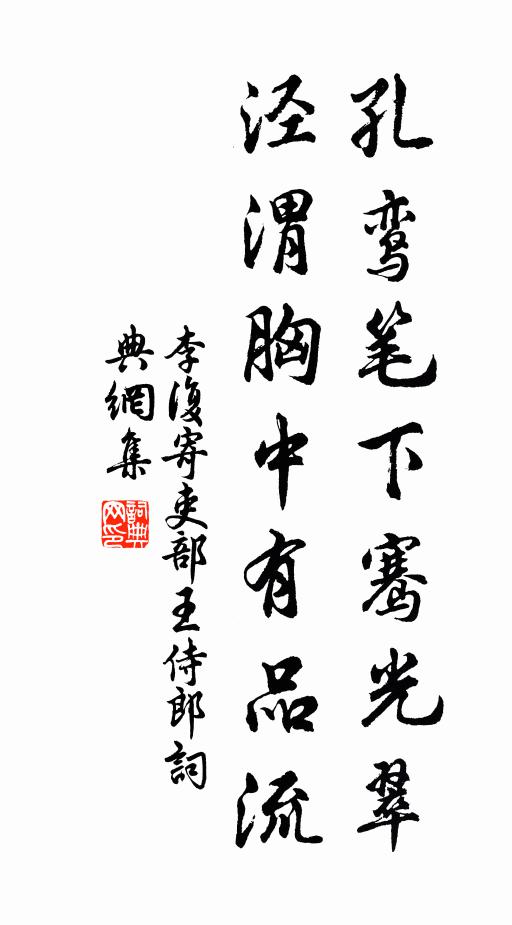 孔鸾笔下骞光翠
泾渭胸中有品流
李復寄吏部王侍郎詞
典網集
詞典网印